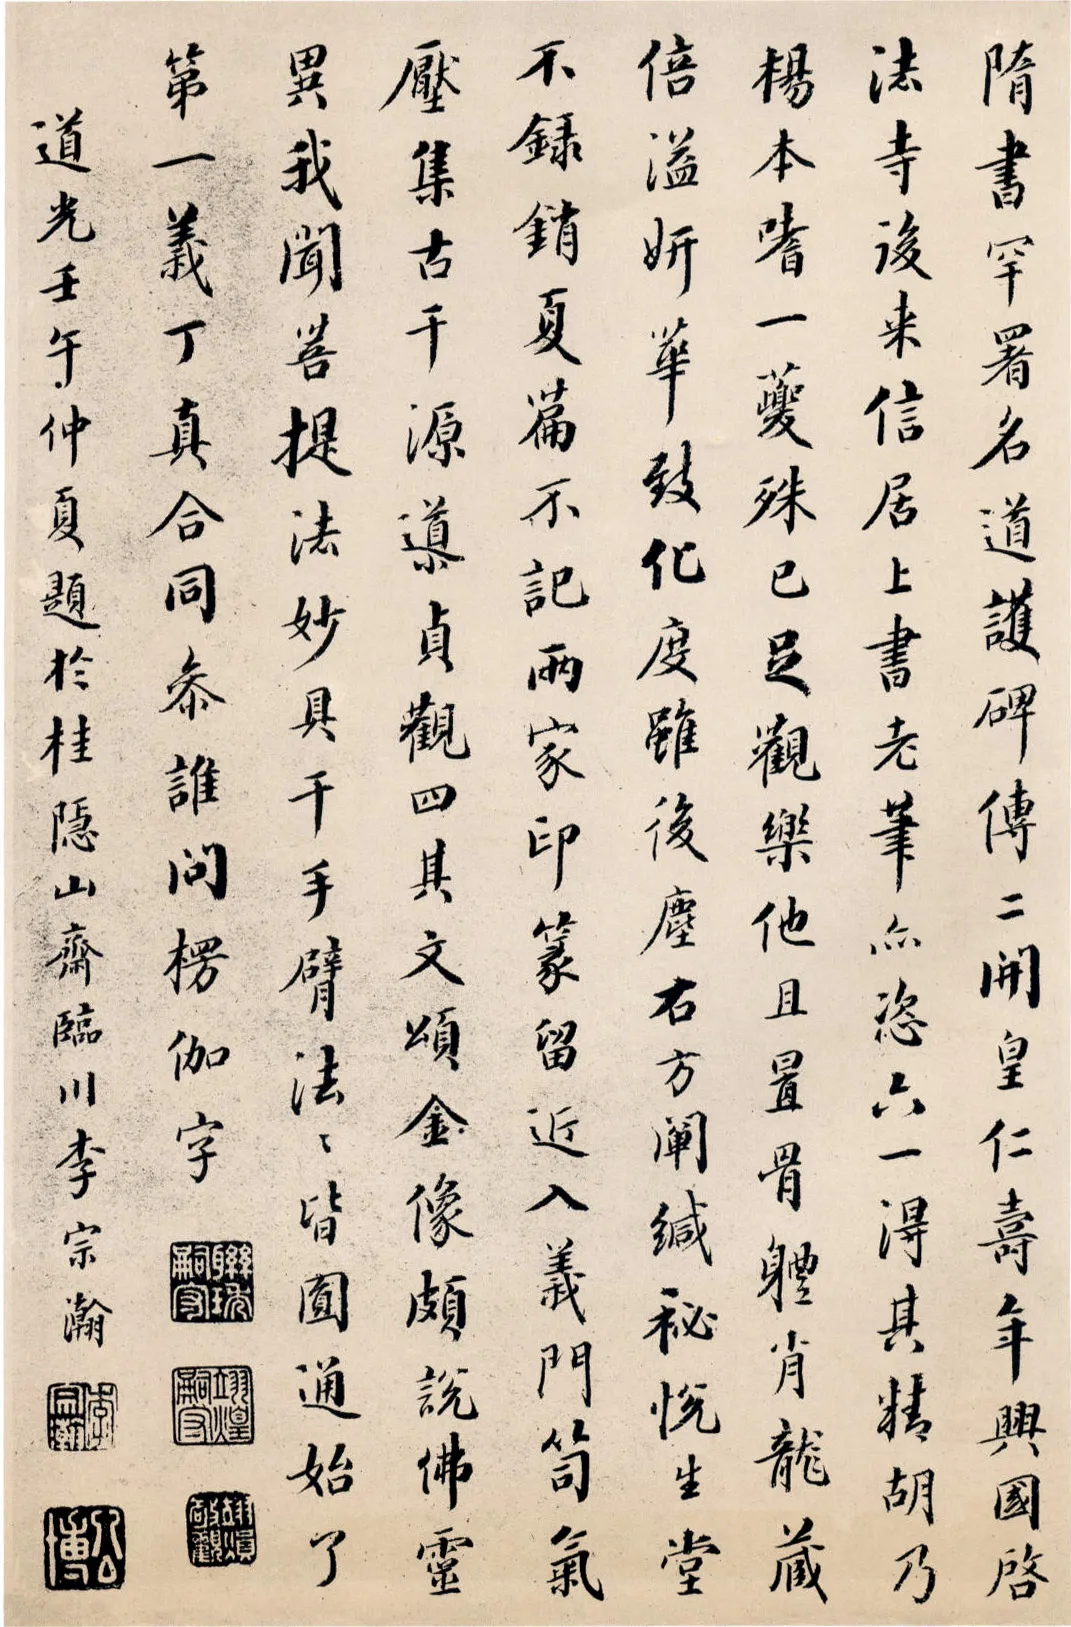 隋書罕署名道護碑傳二開皇仁壽年興國啓
法寺後来信居上書老筆亦恣六一得其精胡乃
楊本嗜一夔殊已足觀樂他且置骨體肖龍蔵
倍溢妍華致化度雖後塵右方闡緘秘悅生堂
不録銷夏篇不記兩家印篆留近入義門笥氣
壓集古千源導貞觀四其文頌金像頗說佛靈
異我聞菩提法妙具千手臂法〻皆圓通始了
第一義丁真合同叅誰問楞伽字
道光壬午仲夏題於桂隱山齋臨川李宗瀚
李宗瀚
公博